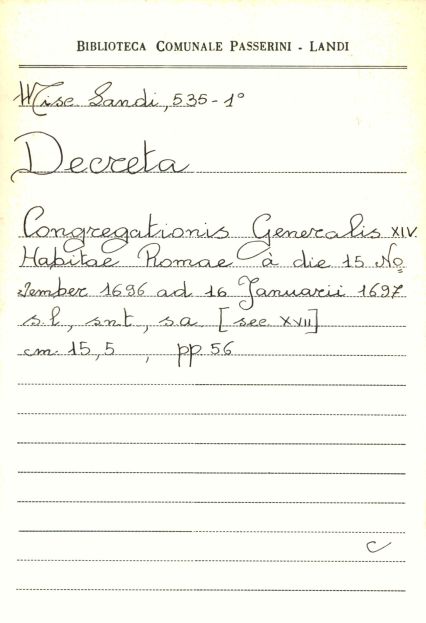 BIBLIOTECA COMUNALE PASSERINI - LANDI
Misc Landi, 535-1°
Decreta
Congregationis Generalis XIV.
Habitae Romae à die 15 No
vember 1696 ad 16 Januarii 1697
s.l, snt, s.a. [sec XVII]
cm 15,5 , pp 56
C